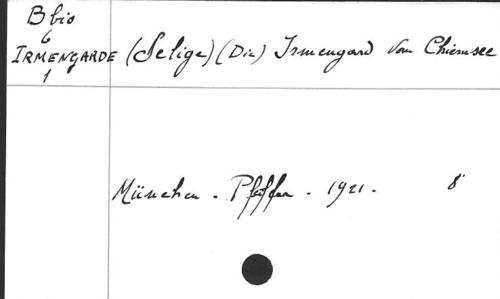 B bio
6
IRMENGARDE (Selige) (Die) Irmengard vom Chiemsee
1
München - Pfeiffer - 1921 - 8°